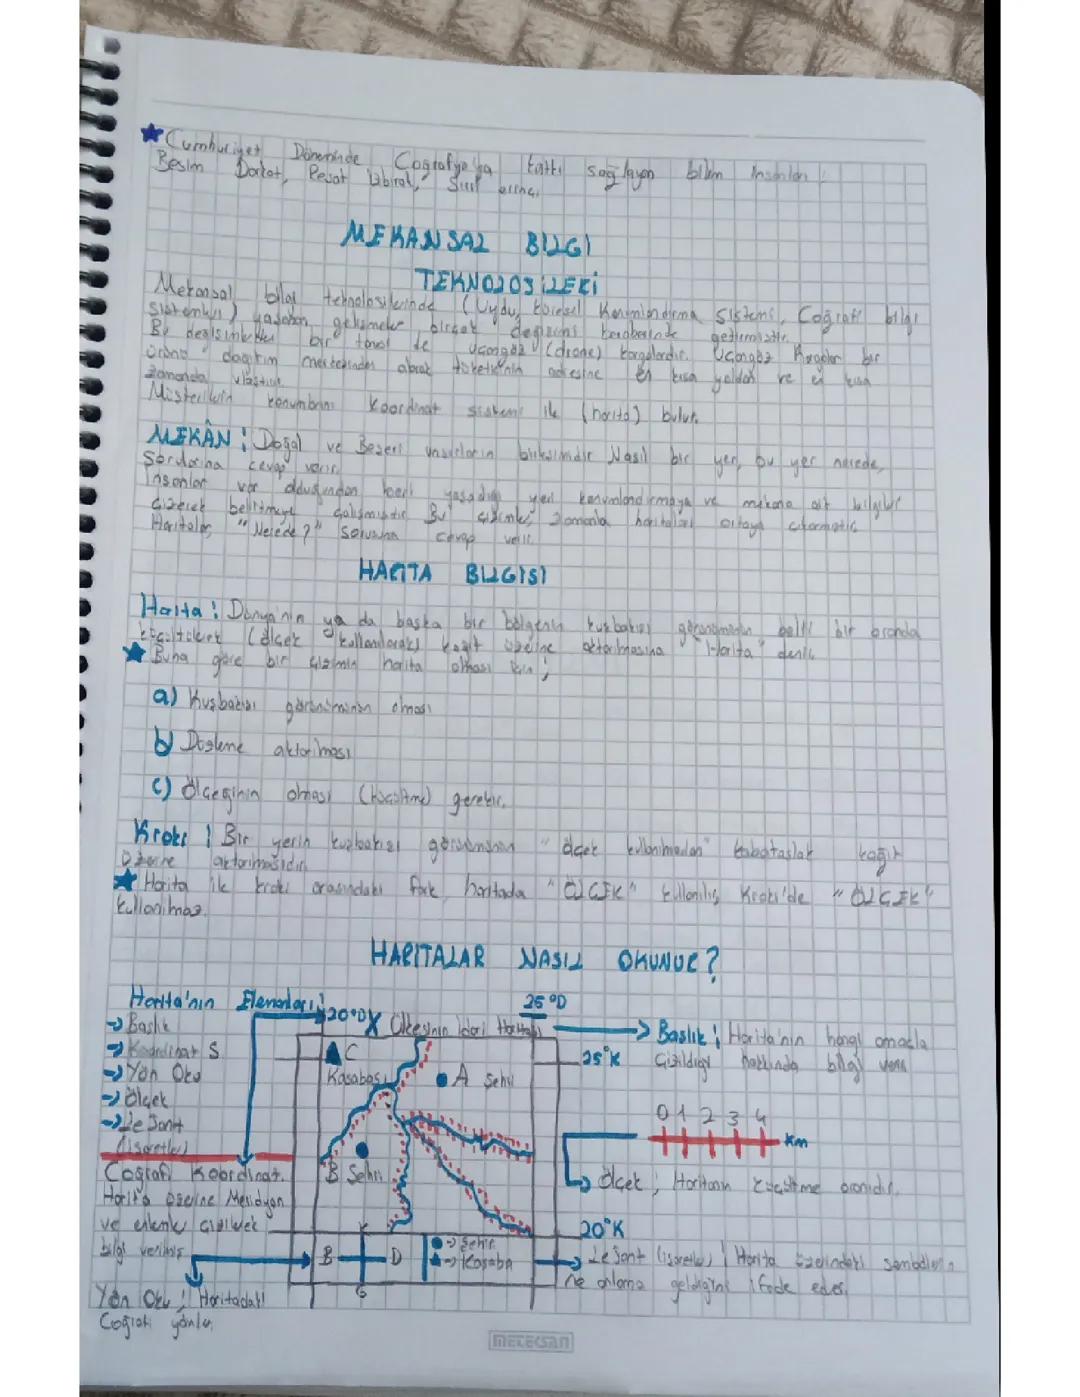 ★ Cumhuriyet Döneminde Coğrafya'ya katkı sağlayan bilim insanları;
Besim Darkot, Reşat Izbırak, Sırrı erinç.
MEKANSAL BİLGİ
TEKNOLOJİLERİ
Mekansal bilgi teknolojilerinde (Uydu, küresel Konumlandırma Sistemi, Coğrafi bilgi
sistemleri) yaşanan gelişmeler birçok değişimi beraberinde getirmiştir.
Bu değişimlerden bir tanesi de uçangöz (drone) kargolardır. Uçangöz Kargolar bir
ürünü dağıtım merkezinden alarak tüketicinin adresine en kısa yoldan ve en kısa
zamanda ulaştırır.
Müşterilerin konumlarını koordinat sistemi ile (harita) bulur.
MEKÂN: Doğal ve Beşeri unsurların birikimidir Nasıl bir yer, bu yer nerede,
Sorularına cevap verir.
İnsanlar var olduğundan beri yaşadığı yeri konumlandırmaya ve mekana ait bilgileri
Çizerek belirtmeye çalışmıştır Bu çizimler zamanla haritaları ortaya çıkarmıştır
Haritalar, "Nerede?" Sorusuna cevap verir.
HARİTA BİLGİSİ
Harita: Dünya'nın ya da başka bir bölgenin kuşbakışı görünümünün belli bir oranda
küçültülerek (ölçek kullanılarak) kağıt üzerine aktarılmasına "Harita" denir.
★ Buna göre bir çizimin harita olması için;
a) Kuşbakışı görünümünün olması
b) Düzleme aktarılması
c) Ölçeğinin olması (küçültme) gerekir.
Kroki: Bir yerin kuşbakışı görünümünün "ölçek kullanılmadan" kabataslak kağıt
üzerine aktarılmasıdır.
★ Harita ile kroki arasındaki fark, haritada "ÖLÇEK" kullanılır, Kroki'de "ÖLÇEK"
kullanılmaz.
HARİTALAR NASIL OKUNUR?
Harita'nın Elemanları;
→ Başlık
→ Koordinat S
→ Yön Oku
→ Ölçek
→ Lejant
(işaretler)
Coğrafi Koordinat:
Harita üzerine Meridyen
ve enlemler çizilerek
bilgi verilmiş
Yön Oku; Haritadaki
Coğrafi yönler.
20°D
25°D
X Ülkesinin İdari Haritası
▲ C
Kasabası
● A Şehri
B Şehri
K
B D
G
● → Şehir
▲ → Kasaba
25°K
20°K
→ Başlık; Harita'nın hangi amaçla
Çizildiği hakkında bilgi verir
0 1 2 3 4
Km
→ Ölçek; Haritanın küçültme oranıdır.
→ Lejant (işaretler); Harita üzerindeki sembollerin
ne anlama geldiğini ifade eder.
METEKSAN